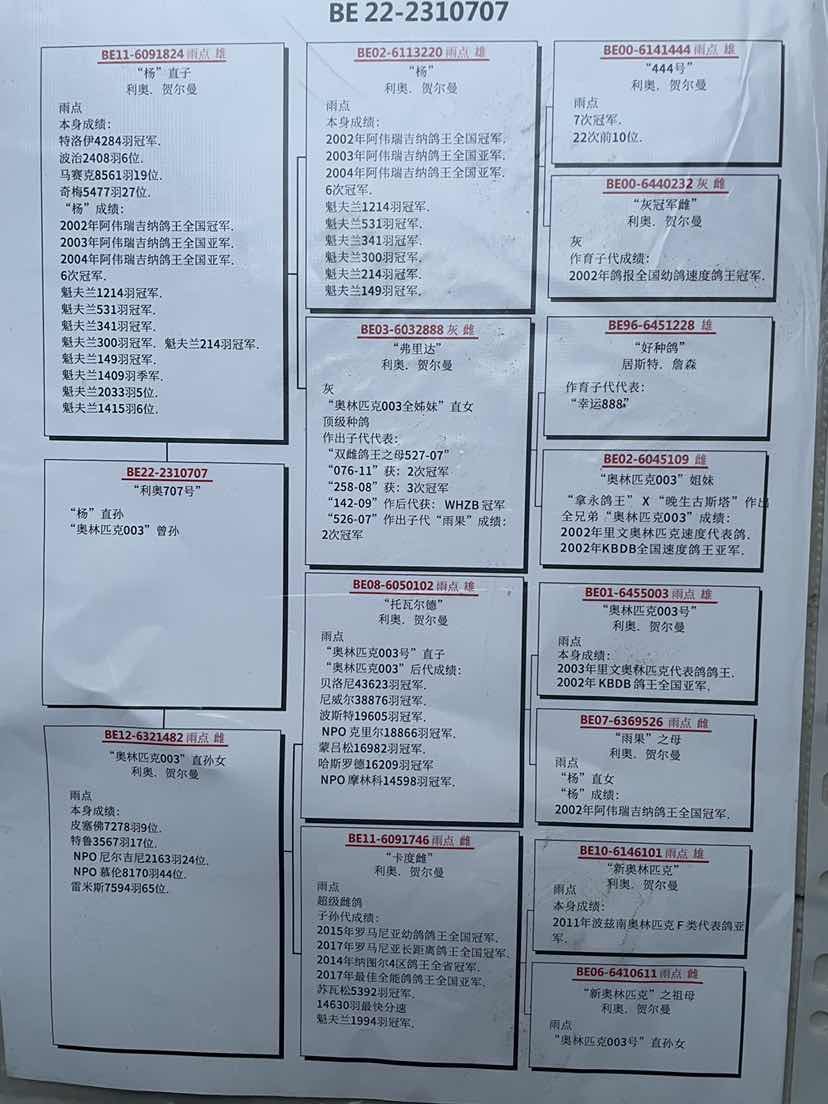 BE 22-2310707
BE11-6091824 雨点 雄
“杨”直子
利奥. 贺尔曼
雨点
本身成绩：
特洛伊4284羽冠军.
波治2408羽6位.
马赛克8561羽19位.
奇梅5477羽27位.
“杨”成绩：
2002年阿伟瑞吉纳鸽王全国冠军.
2003年阿伟瑞吉纳鸽王全国亚军.
2004年阿伟瑞吉纳鸽王全国亚军.
6次冠军.
魁夫兰1214羽冠军.
魁夫兰531羽冠军.
魁夫兰341羽冠军.
魁夫兰300羽冠军. 魁夫兰214羽冠军.
魁夫兰149羽冠军.
魁夫兰1409羽季军.
魁夫兰2033羽5位.
魁夫兰1415羽6位.
BE22-2310707
“利奥707号”
“杨”直孙
“奥林匹克003”曾孙
BE12-6321482 雨点 雌
“奥林匹克003”直孙女
利奥. 贺尔曼
雨点
本身成绩：
皮塞佛7278羽9位.
特鲁3567羽17位.
NPO 尼尔吉尼2163羽24位.
NPO 慕伦8170羽44位.
雷米斯7594羽65位.
BE02-6113220 雨点 雄
“杨”
利奥. 贺尔曼
雨点
本身成绩：
2002年阿伟瑞吉纳鸽王全国冠军.
2003年阿伟瑞吉纳鸽王全国亚军.
2004年阿伟瑞吉纳鸽王全国亚军.
6次冠军.
魁夫兰1214羽冠军.
魁夫兰531羽冠军.
魁夫兰341羽冠军.
魁夫兰300羽冠军.
魁夫兰214羽冠军.
魁夫兰149羽冠军.
BE03-6032888 灰 雌
“弗里达”
利奥. 贺尔曼
灰
“奥林匹克003全姊妹”直女
顶级种鸽
作出子代代表：
“双雌鸽王之母527-07”
“076-11”获：2次冠军
“258-08”获：3次冠军
“142-09”作后代获：WHZB 冠军
“526-07”作出子代“雨果”成绩：
2次冠军
BE08-6050102 雨点 雄
“托瓦尔德”
利奥. 贺尔曼
雨点
“奥林匹克003号”直子
“奥林匹克003”后代成绩：
贝洛尼43623羽冠军.
尼威尔38876羽冠军.
波斯特19605羽冠军.
NPO 克里尔18866羽冠军.
蒙吕松16982羽冠军.
哈斯罗德16209羽冠军.
NPO 摩林科14598羽冠军.
BE11-6091746 雨点 雌
“卡度雌”
利奥. 贺尔曼
雨点
超级雌鸽
子孙代成绩：
2015年罗马尼亚幼鸽鸽王全国冠军.
2017年罗马尼亚长距离鸽王全国冠军.
2014年纳图尔4区鸽王全省冠军.
2017年最佳全能鸽鸽王全国亚军.
苏瓦松5392羽冠军.
14630羽最快分速
魁夫兰1994羽冠军.
BE00-6141444 雨点 雄
“444号”
利奥. 贺尔曼
雨点
7次冠军.
22次前10位.
BE00-6440232 灰 雌
“灰冠军雌”
利奥. 贺尔曼
灰
作育子代成绩：
2002年鸽报全国幼鸽速度鸽王冠军.
BE96-6451228 雄
“好种鸽”
居斯特. 詹森
作育子代代表：
“幸运888”
BE02-6045109 雌
“奥林匹克003”姐妹
“拿永鸽王” X “晚生古斯塔”作出
全兄弟“奥林匹克003”成绩：
2002年里文奥林匹克速度代表鸽.
2002年KBDB全国速度鸽王亚军.
BE01-6455003 雨点 雄
“奥林匹克003号”
利奥. 贺尔曼
雨点
本身成绩：
2003年里文奥林匹克代表鸽鸽王.
2002年 KBDB 鸽王全国亚军.
BE07-6369526 雨点 雌
“雨果”之母
利奥. 贺尔曼
雨点
“杨”直女
“杨”成绩：
2002年阿伟瑞吉纳鸽王全国冠军.
BE10-6146101 雨点 雄
“新奥林匹克”
利奥. 贺尔曼
雨点
本身成绩：
2011年波兹南奥林匹克 F 类代表鸽亚
军.
BE06-6410611 雨点 雌
“新奥林匹克”之祖母
利奥. 贺尔曼
雨点
“奥林匹克003号”直孙女